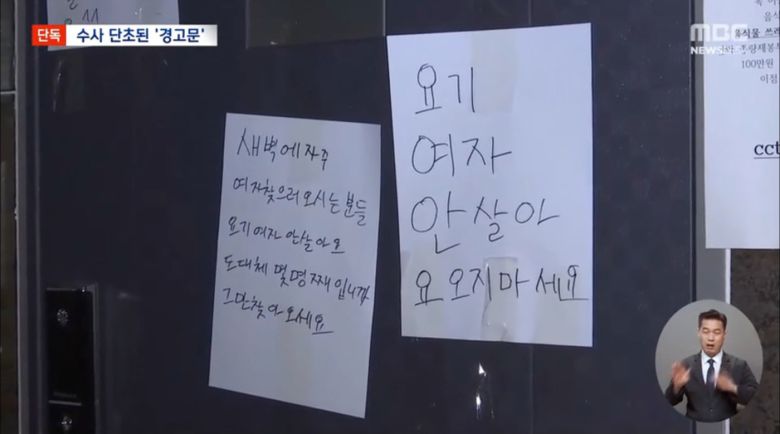 단독 수사 단초된 '경고문'
MBC
NEWS
요기
여자
안살아
요 오지마세요
새벽에자주
여자찾으러오시는분들
요기여자안살아요
도대체 몇명째입니까
그만찾아오세요
100만원
이점
cct